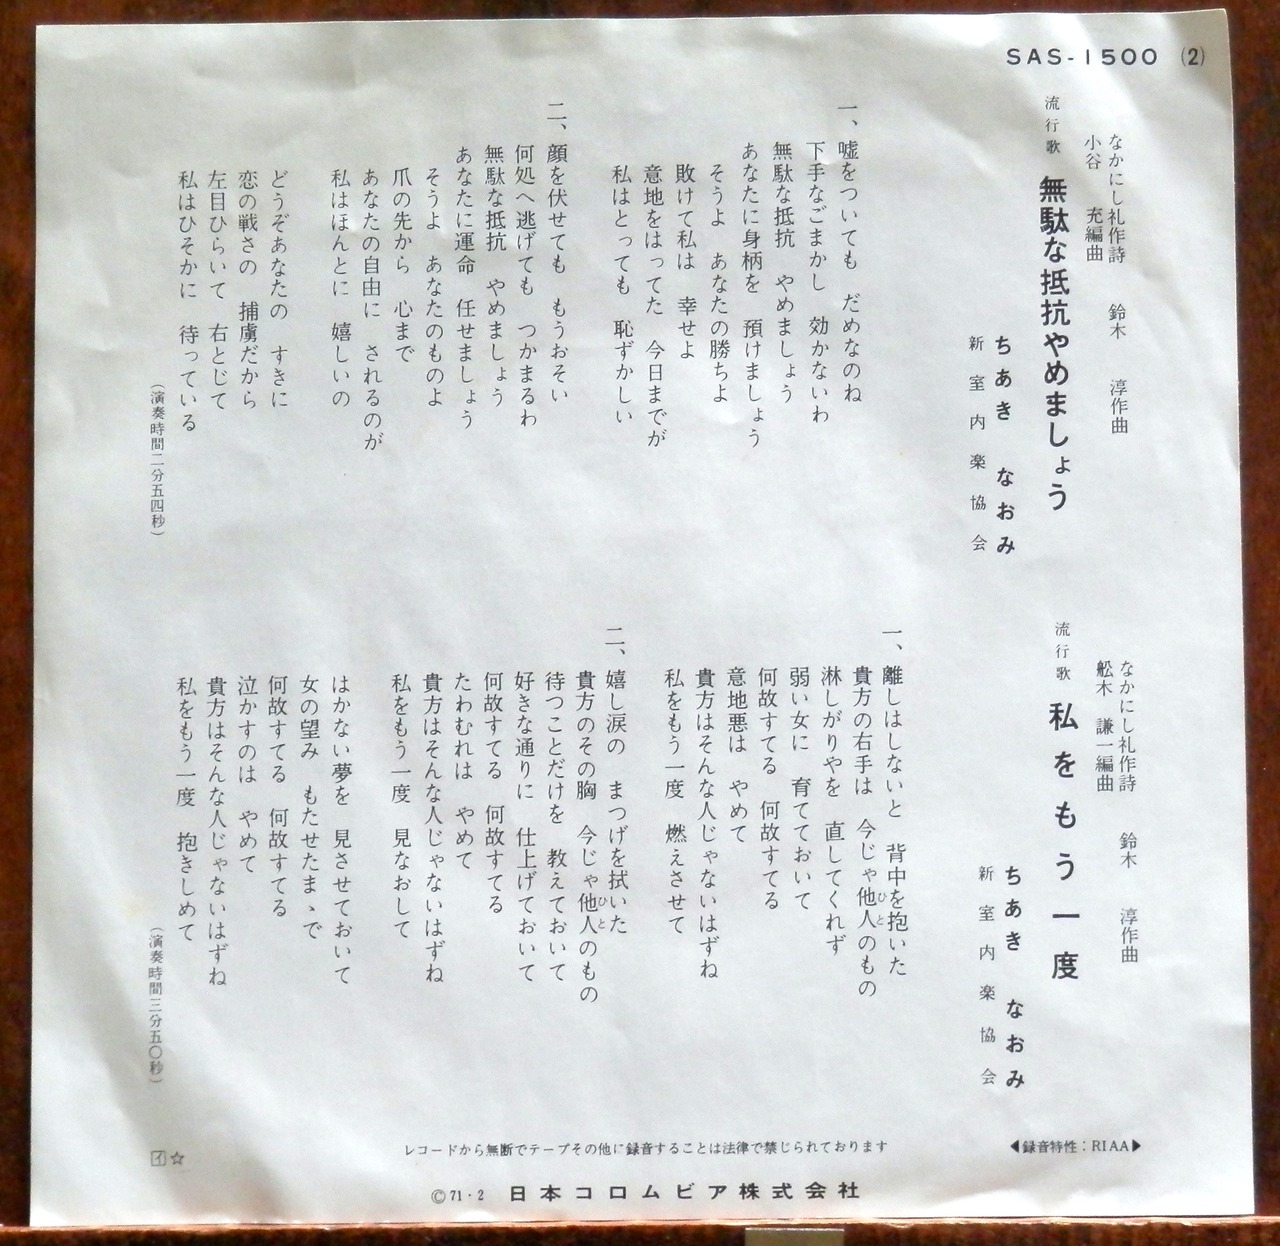 SAS-1500 (2)
なかにし礼作詩 鈴木 淳作曲
小谷 充編曲
流行歌 無駄な抵抗やめましょう
ちあき なおみ
新室内楽協会
一、嘘をついても だめなのね
下手なごまかし 効かないわ
無駄な抵抗 やめましょう
あなたに身柄を 預けましょう
そうよ あなたの勝ちよ
敗けて私は 幸せよ
意地をはってた 今日までが
私はとっても 恥ずかしい
二、顔を伏せても もうおそい
何処へ逃げても つかまるわ
無駄な抵抗 やめましょう
あなたに運命 任せましょう
そうよ あなたのものよ
爪の先から 心まで
あなたの自由に されるのが
私はほんとに 嬉しいの
どうぞあなたの すきに
恋の戦さの 捕虜だから
左目ひらいて 右とじて
私はひそかに 待っている
(演奏時間二分五四秒)
なかにし礼作詩 鈴木 淳作曲
舩木 謙一編曲
流行歌 私をもう一度
ちあき なおみ
新室内楽協会
一、離しはしないと 背中を抱いた
貴方の右手は 今じゃ他人のもの
ひと
淋しがりやを 直してくれず
弱い女に 育てておいて
何故すてる 何故すてる
意地悪は やめて
貴方はそんな人じゃないはずね
私をもう一度 燃えさせて
二、嬉し涙の まつげを拭いた
貴方のその胸 今じゃ他人のもの
ひと
待つことだけを 教えておいて
好きな通りに 仕上げておいて
何故すてる 何故すてる
たわむれは やめて
貴方はそんな人じゃないはずね
私をもう一度 見なおして
はかない夢を 見させておいて
女の望み もたせたまゝで
何故すてる 何故すてる
泣かすのは やめて
貴方はそんな人じゃないはずね
私をもう一度 抱きしめて
(演奏時間三分五〇秒)
レコードから無断でテープその他に録音することは法律で禁じられております
◀録音特性：RIAA▶
イ☆
©71・2 日本コロムビア株式会社